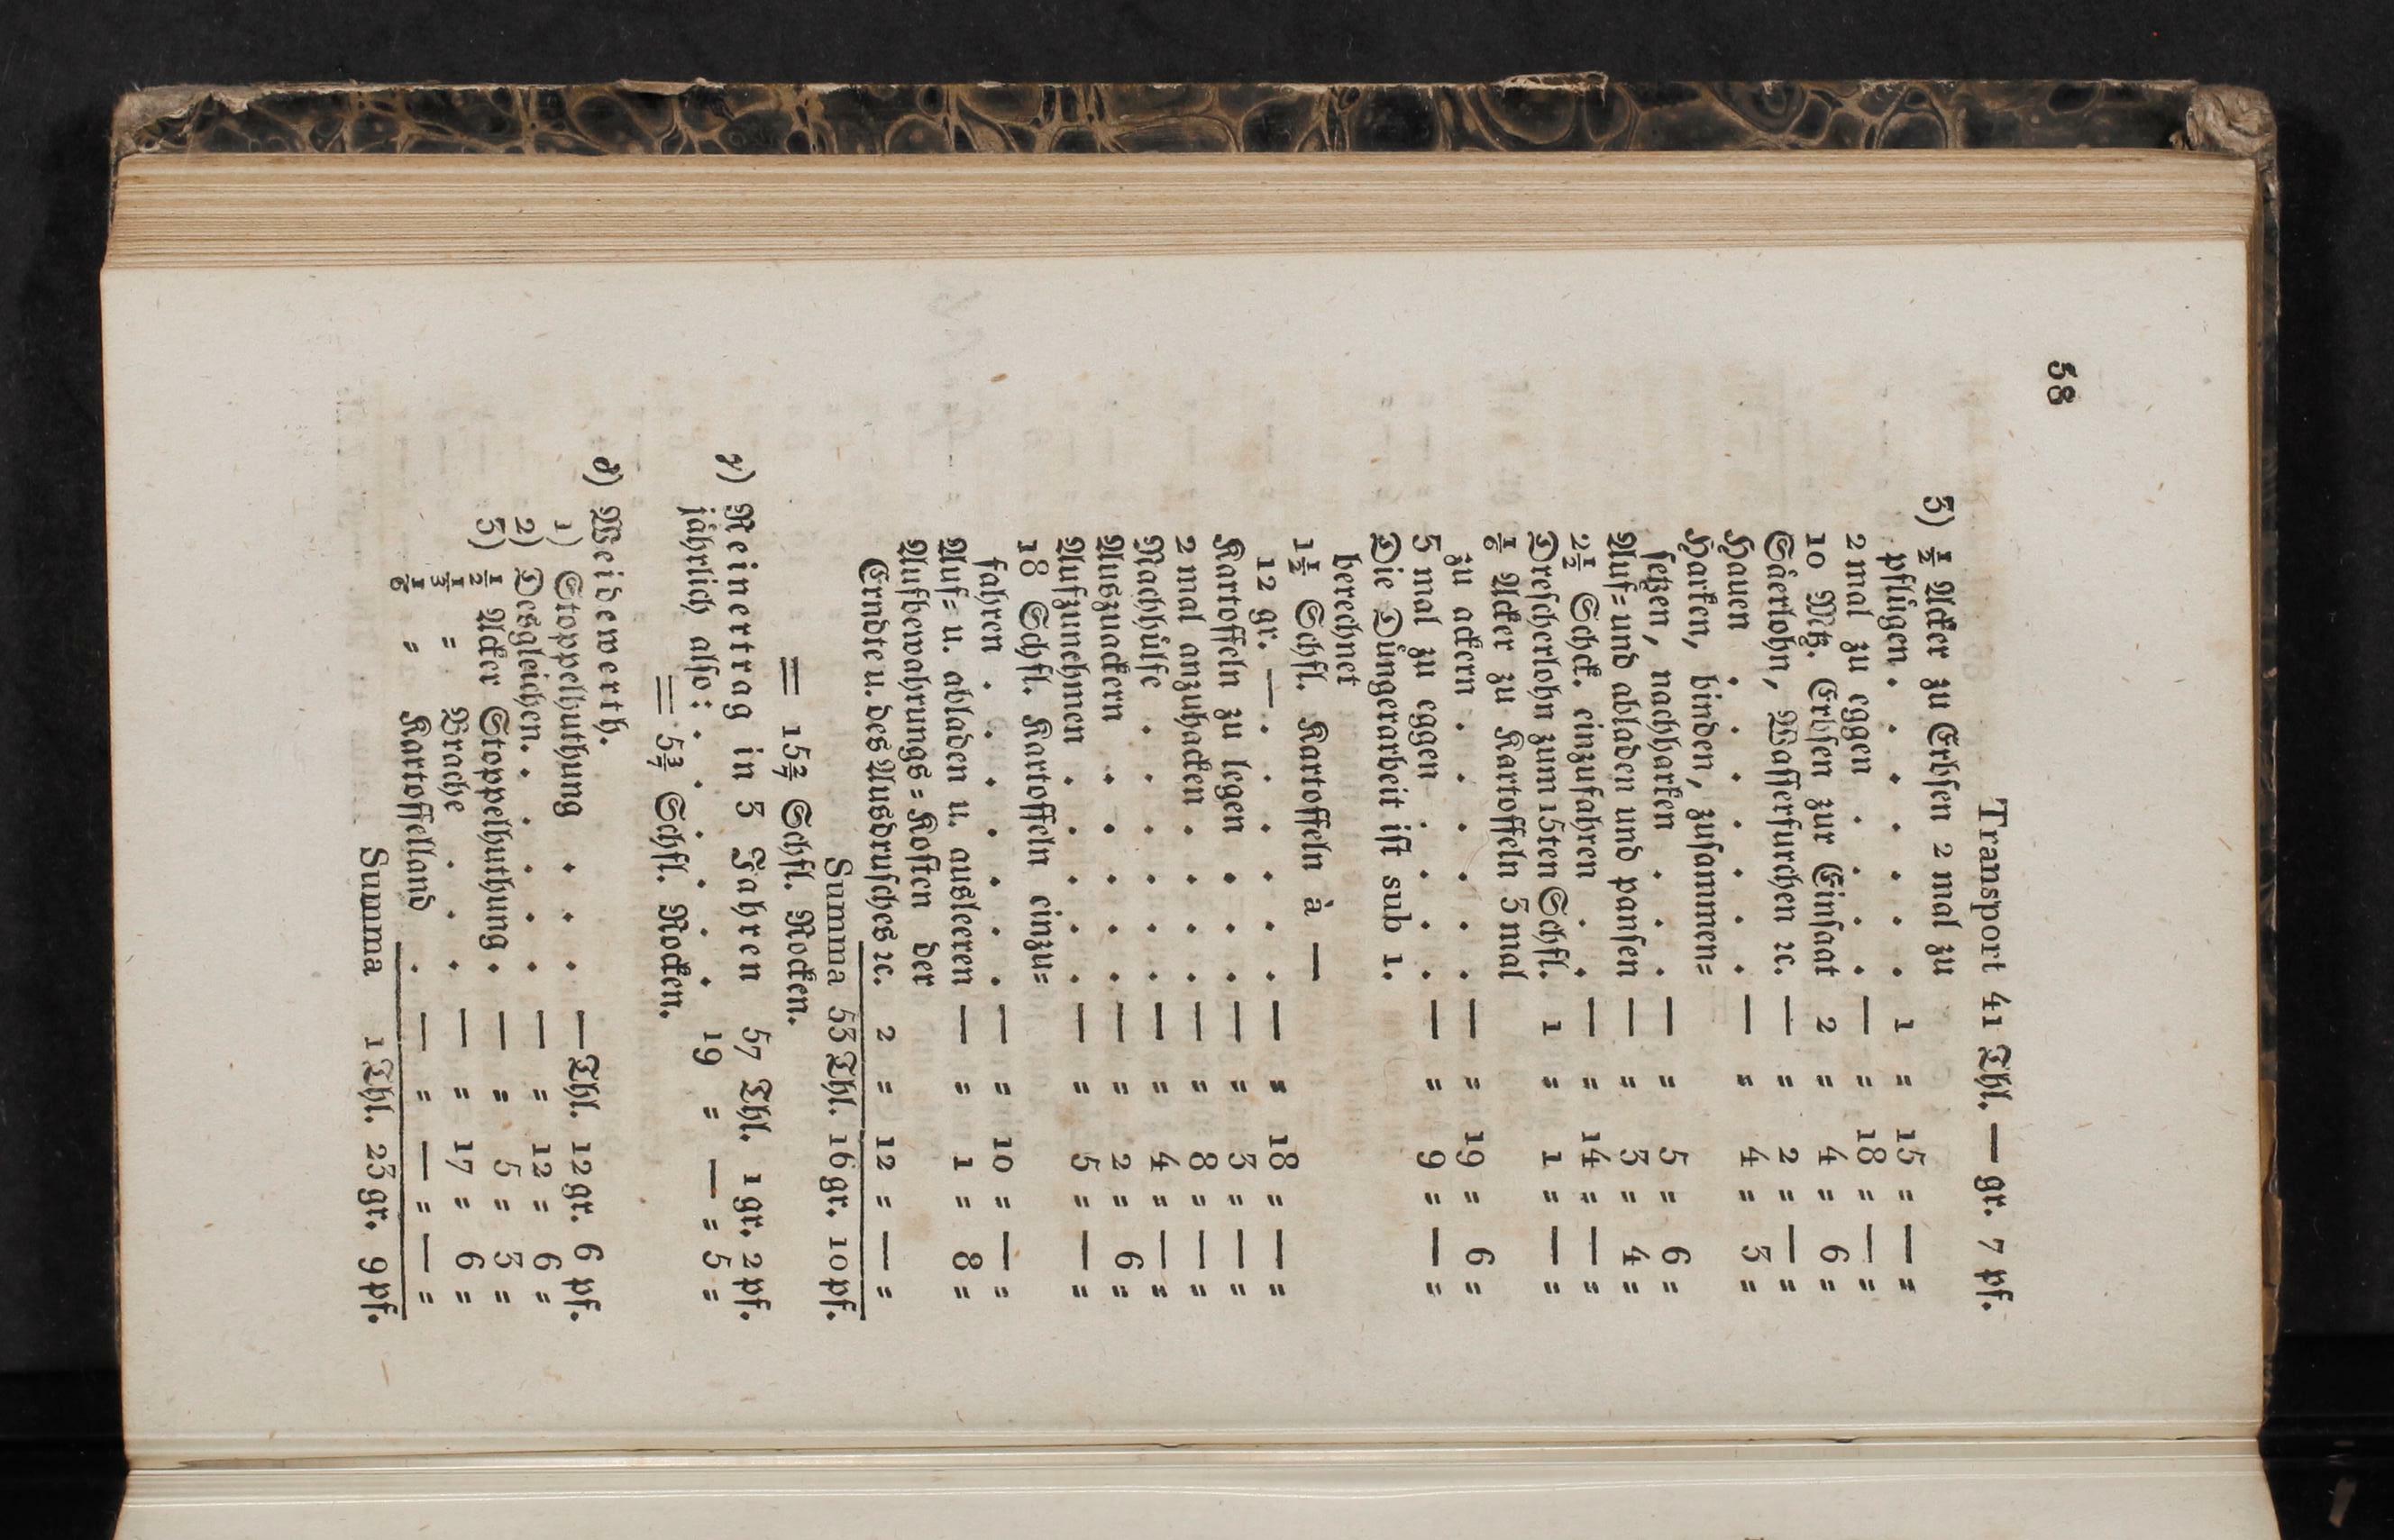 58
Transport 41 Thl. — gr. 7 pf.
3) ½ Acker zu Erbsen 2 mal zu
pflügen . . . . . . . 1 = 15 = — =
2 mal zu eggen . . . . — = 18 = — =
10 Mtz. Erbsen zur Einsaat 2 = 4 = 6 =
Säerlohn, Wasserfurchen ꝛc. — = 2 = — =
Hauen . . . . . . . — = 4 = 3 =
Harken, binden, zusammen=
setzen, nachharken . . . — = 5 = 6 =
Auf= und abladen und pansen — = 3 = 4 =
2½ Schck. einzufahren . . — = 14 = — =
Drescherlohn zum 15ten Schfl. 1 = 1 = — =
⅙ Acker zu Kartoffeln 3 mal
zu ackern . . . . . . — = 19 = 6 =
3 mal zu eggen . . . . — = 9 = — =
Die Düngerarbeit ist sub 1.
berechnet
1½ Schfl. Kartoffeln à —
12 gr. — . . . . . . — = 18 = — =
Kartoffeln zu legen . . . — = 3 = — =
2 mal anzuhacken . . . . — = 8 = — =
Nachhülfe . . . . . . — = 4 = — =
Auszuackern . . . . . — = 2 = 6 =
Aufzunehmen . . . . . — = 5 = — =
18 Schfl. Kartoffeln einzu=
fahren . . . . . . . — = 10 = — =
Auf= u. abladen u. ausleeren — = 1 = 8 =
Aufbewahrungs=Kosten der
Erndte u. des Ausdrusches ꝛc. 2 = 12 = — =
Summa 53 Thl. 16 gr. 10 pf.
= 15 2/7 Schfl. Rocken.
γ) Reinertrag in 3 Jahren 57 Thl. 1 gr. 2 pf.
jährlich also: . . . . . . 19 = — = 5 =
= 5 3/7 Schfl. Rocken.
δ) Weidewerth.
1) Stoppelhuthung . . . — Thl. 12 gr. 6 pf.
2) Desgleichen. . . . . . — = 12 = 6 =
3) ½ Acker Stoppelhuthung . — = 5 = 3 =
⅓ = Brache . . . — = 17 = 6 =
⅙ = Kartoffelland . — = — = — =
Summa 1 Thl. 23 gr. 9 pf.